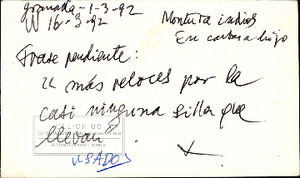 Granada-1-3-92
W 16-3-92
Montura indios
En cartera hijo
Frase pendiente:
más veloces por la
casi ninguna silla que
llevan
USADOS